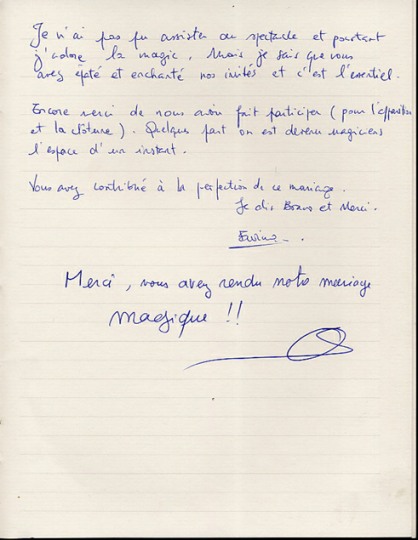 Je n'ai pas pu assister au spectacle et pourtant
j'adore la magic, Mais je sais que vous
avez épaté et enchanté nos invités et c'est l'essentiel.
Encore merci de nous avoir fait participer (pour l'apparition
et la clôture). Quelque part on est devenu magiciens
l'espace d'un instant.
Vous avez contribué à la perfection de ce mariage.
Je dis Bravo et Merci.
Merci, vous avez rendu notre mariage
magique !!